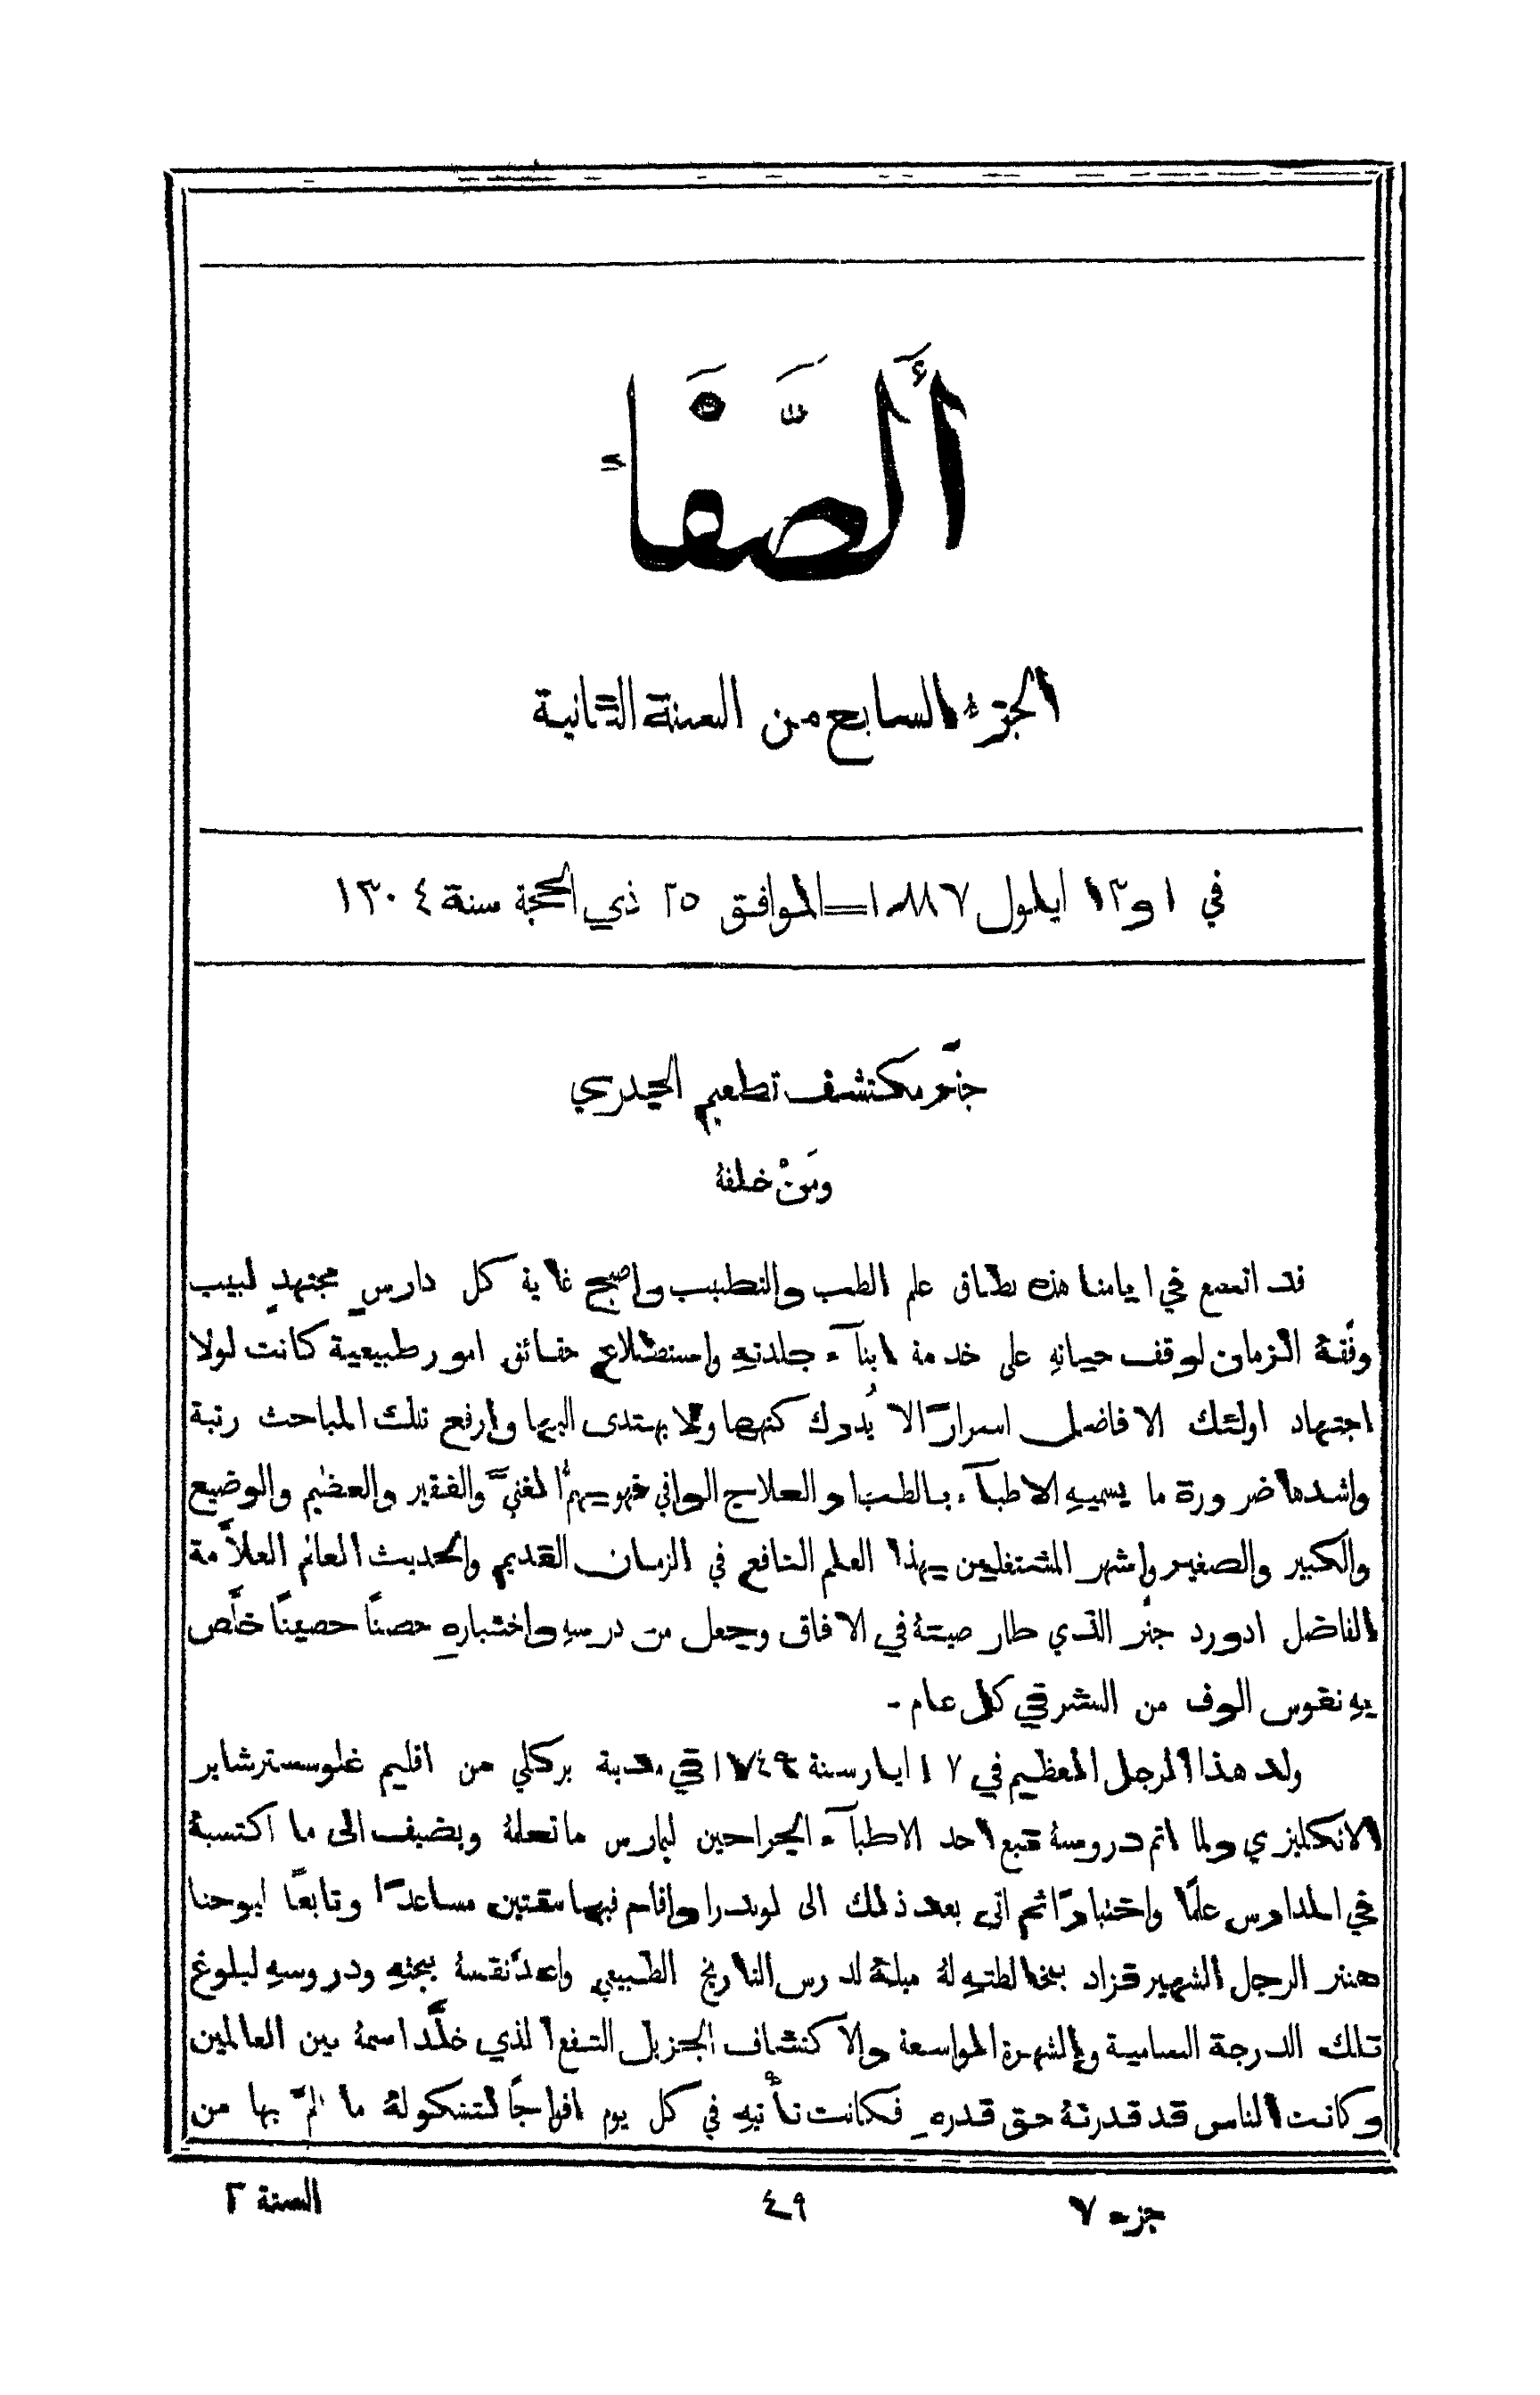 أَلصَّفَاء
الجزء السابع من السنة الثانية
في ١ و١٣ ايلول ١٨٨٧ــالموافق ٢٥ ذي الحجة سنة ١٣٠٤
جنَّر مكتشف تطعيم الجدري
ومَنْ خلفهُ
قد اتسع في ايامنا هذه نطاق علم الطب والتطبيب واصبح غاية كل دارسٍ مجتهدٍ لبيب
وفَّقهُ الزمان لوقف حياتهِ على خدمة ابنآء جلدتهِ واستطلاع حقائق امور طبيعية كانت لولا
اجتهاد اولئك الافاضل اسرارًا لا يُدرك كنهها ولا يهتدى اليها وارفع تلك المباحث رتبة
واشدها ضرورة ما يسميهِ الاطبآء بالطب او العلاج الوافي فهو يهمُّ الغنيَّ والفقير والعظيم والوضيع
والكبير والصغير واشهر المشتغلين بهذا العلم النافع في الزمان القديم والحديث العالم العلاَّمة
الفاضل ادورد جنَر الذي طار صيتهُ في الافاق وجعل من درسهِ واختبارهِ حصنًا حصينًا خلَّص
بهِ نفوس الوف من البشر في كل عام ـ
ولد هذا الرجل العظيم في ١٧ ايار سنة ١٧٤٩ في مدينة بركلي من اقليم غلوسسترشاير
الانكليزي ولما اتم دروسهُ تبع احد الاطبآء الجراحين ليمارس ما تعلمهُ ويضيف الى ما اكتسبهُ
في المدارس علمًا واختبارًا ثم اتى بعد ذلك الى لوندرا واقام فيها سنتين مساعدًا وتابعًا ليوحنا
هنتر الرجل الشهير فزاد بمخالطتهِ لهُ ميلهُ لدرس التاريخ الطبيعي واعدَّ نفسهُ ببحثهِ ودروسهِ لبلوغ
تلك الدرجة السامية والشهرة الواسعة والاكتشاف الجزيل النفع الذي خلَّد اسمهُ بين العالمين
وكانت الناس قد قدرتهُ حق قدرهِ فكانت تأْتيهِ في كل يوم افواجًا لتشكو لهُ ما المَّ بها من
جزء ٧
٤٩
السنة ٢